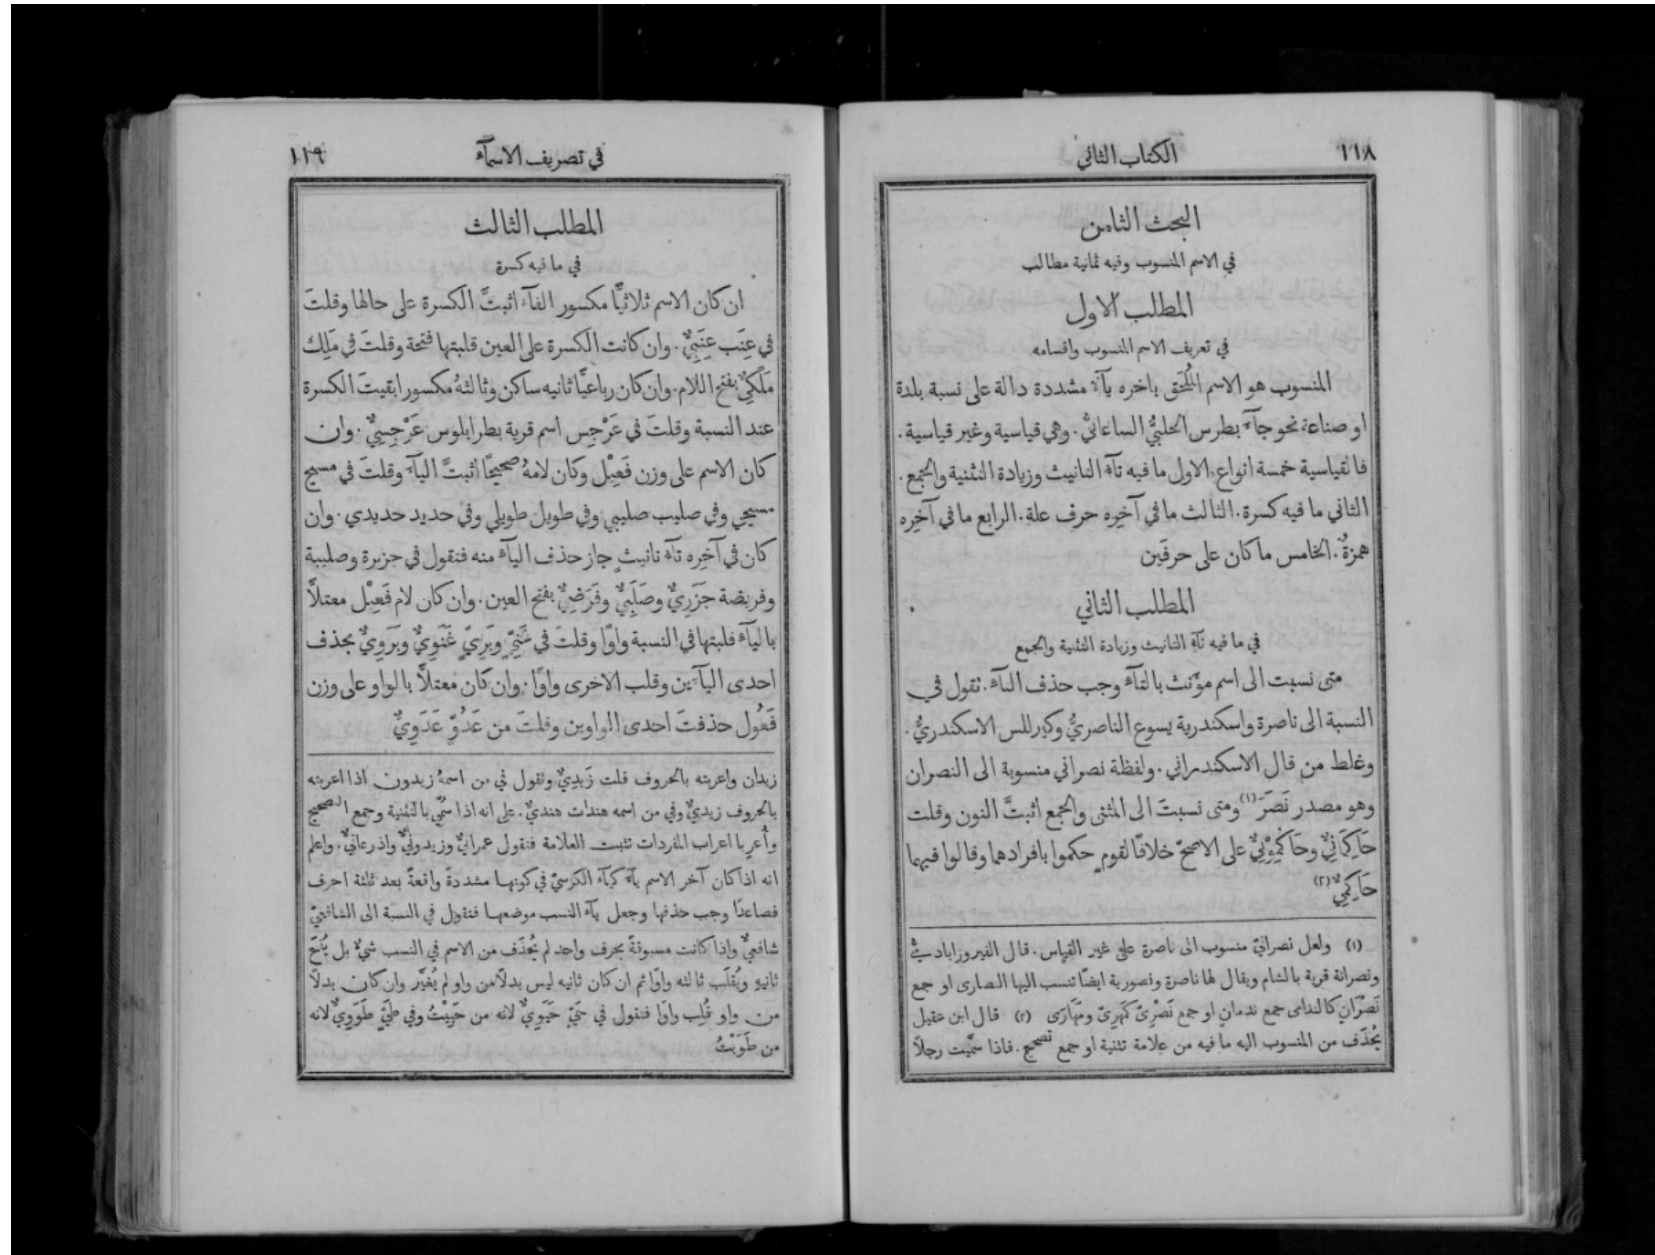 ١١٨
الكتاب الثاني
البحث الثامن
في الاسم المنسوب وفيه ثمانية مطالب
المطلب الاول
في تعريف الاسم المنسوب واقسامه
المنسوب هو الاسم المُلحَق باخره يآءٌ مشددة دالة على نسبة بلدة
او صناعة نحو جآءَ بطرس الحلبيُّ الساعاتيُّ. وهي قياسية وغير قياسية.
فالقياسية خمسة انواع. الاول ما فيه تآءُ التانيث وزيادة التثنية والجمع.
الثاني ما فيه كسرة. الثالث ما في آخِره حرف علة. الرابع ما في آخِره
همزةٌ. الخامس ما كان على حرفَين
المطلب الثاني
في ما فيه تآءُ التانيث وزيادة التثنية والجمع
متى نسبت الى اسم مؤَنث بالتآءِ وجب حذف التآءِ. تقول في
النسبة الى ناصرة واسكندرية يسوع الناصريُّ وكيرللس الاسكندريُّ.
وغلط من قال الاسكندراني. ولفظة نصراني منسوبة الى النصران
وهو مصدر نَصَرَ (١) ومتى نسبتَ الى المثنى والجمع اثبتَّ النون وقلت
حَاكِمَانِيٌّ وحَاكِمُوْنِيٌّ على الاصحّ خلافًا لقومٍ حكموا بافرادهما وقالوا فيهما
حَاكِمِيٌّ (٢)
(١) ولعل نصرانيّ منسوب الى ناصرة على غير القياس. قال الفيروزابادي في
ونصرانة قرية بالشام ويقال لها ناصرة ونصورية ايضًا تنسب اليها النصارى او جمع
نَصْرَانٍ كالندامى جمع ندمان او جمع نَصْرِيّ كَمَهْرِيّ ومَهَارَى (٢) قال ابن عقيل
يُحذَف من المنسوب اليه ما فيه من علامة تثنية او جمع تصحيح. فاذا سمَّيت رجلًا
في تصريف الاسمآء
١١٩
المطلب الثالث
في ما فيه كسرة
ان كان الاسم ثلاثيًّا مكسور الفآءِ اثبتَّ الكسرة على حالها وقلتَ
في عِنَب عِنَبِيٌّ. وان كانت الكسرة على العين قلبتها فتحة وقلتَ في مَلِك
مَلَكِيٌّ بفتح اللام. وان كان رباعيًّا ثانيه ساكن وثالثهُ مكسور ابقيتَ الكسرة
عند النسبة وقلتَ في عَرْجِس اسم قرية بطرابلوس عَرْجِسِيٌّ. وان
كان الاسم على وزن فَعِيْل وكان لامهُ صحيحًا اثبتَّ اليآءَ وقلتَ في مسيح
مسيحي وفي صليب صليبي وفي طويل طويلي وفي حديد حديدي. وان
كان في آخِره تآءُ تانيثٍ جاز حذف اليآءِ منه فتقول في جزيرة وصليبة
وفريضة جَزَرِيٌّ وصَلَبِيٌّ وفَرَضِيٌّ بفتح العين. وان كان لام فَعِيْل معتلًّا
باليآءِ قلبتها في النسبة واوًا وقلتَ في غَنِيٍّ وبَرِيٍّ غَنَوِيٌّ وبَرَوِيٌّ بحذف
احدى اليآءَين وقلب الاخرى واوًا. وان كان معتلًّا بالواو على وزن
فَعُول حذفتَ احدى الواوين وقلتَ من عَدُوٍّ عَدَوِيٌّ
زيدان واعربته بالحروف قلت زَيدِيٌّ وتقول في من اسمهُ زيدون اذا اعربته
بالحروف زيديٌّ وفي من اسمه هندات هنديٌّ. على انه اذا سُمّي بالتثنية وجمع الصحيح
وأُعربا اعراب المفردات تثبت العلامة فتقول عمرانيٌّ وزيدونيٌّ واذرعاتيٌّ. واعلم
انه اذا كان آخر الاسم يآءً كيآءِ الكرسيّ في كونهـا مشددةً واقعةً بعد ثلثة احرف
فصاعدًا وجب حذفها وجعل يآءِ النسب موضعهـا فتقول في النسبة الى الشافعيّ
شافعيٌّ واذا كانت مسبوقةً بحرف واحد لم يُحذَف من الاسم في النسب شيءٌ بل يُفتَح
ثانيهِ ويُقلَب ثالثه واوًا ثم ان كان ثانيه ليس بدلًا من واو لم يُغيَّر وان كان بدلًا
من واو قُلِب واوًا فتقول في حَيّ حَيَوِيٌّ لانه من حَيِيْتُ وفي طَيّ طَوَوِيٌّ لانه
من طَوَيْتُ